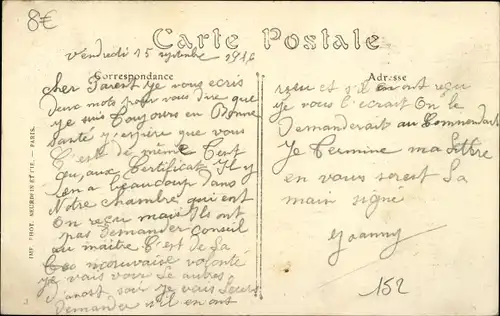 8€
Carte Postale
Vendredi 15 1916
Correspondance
Adresse
cher Parent je vous ecris
deux mots pour vous dire que
je suis toujours en Bonne
Santé j'espère que vous
C'est de même C'est
aux Certificat Il y
en a beaucoup dans
Notre chambre qui ont
On reçu mais Ils ont
pas demander Conseil
au maitre C'est de la
mauvaise volonté
Je vais voir Le autres
soir je vais Leurs
demander s'il en ont
reçu et s'il en ont reçu
je vous l'écrait On Le
demanderait au Commendant
Je Termine ma Lettre
en vous serest La
main signé
Joanny
152
IMP. PHOT. NEURDEIN ET CIE. — PARIS.